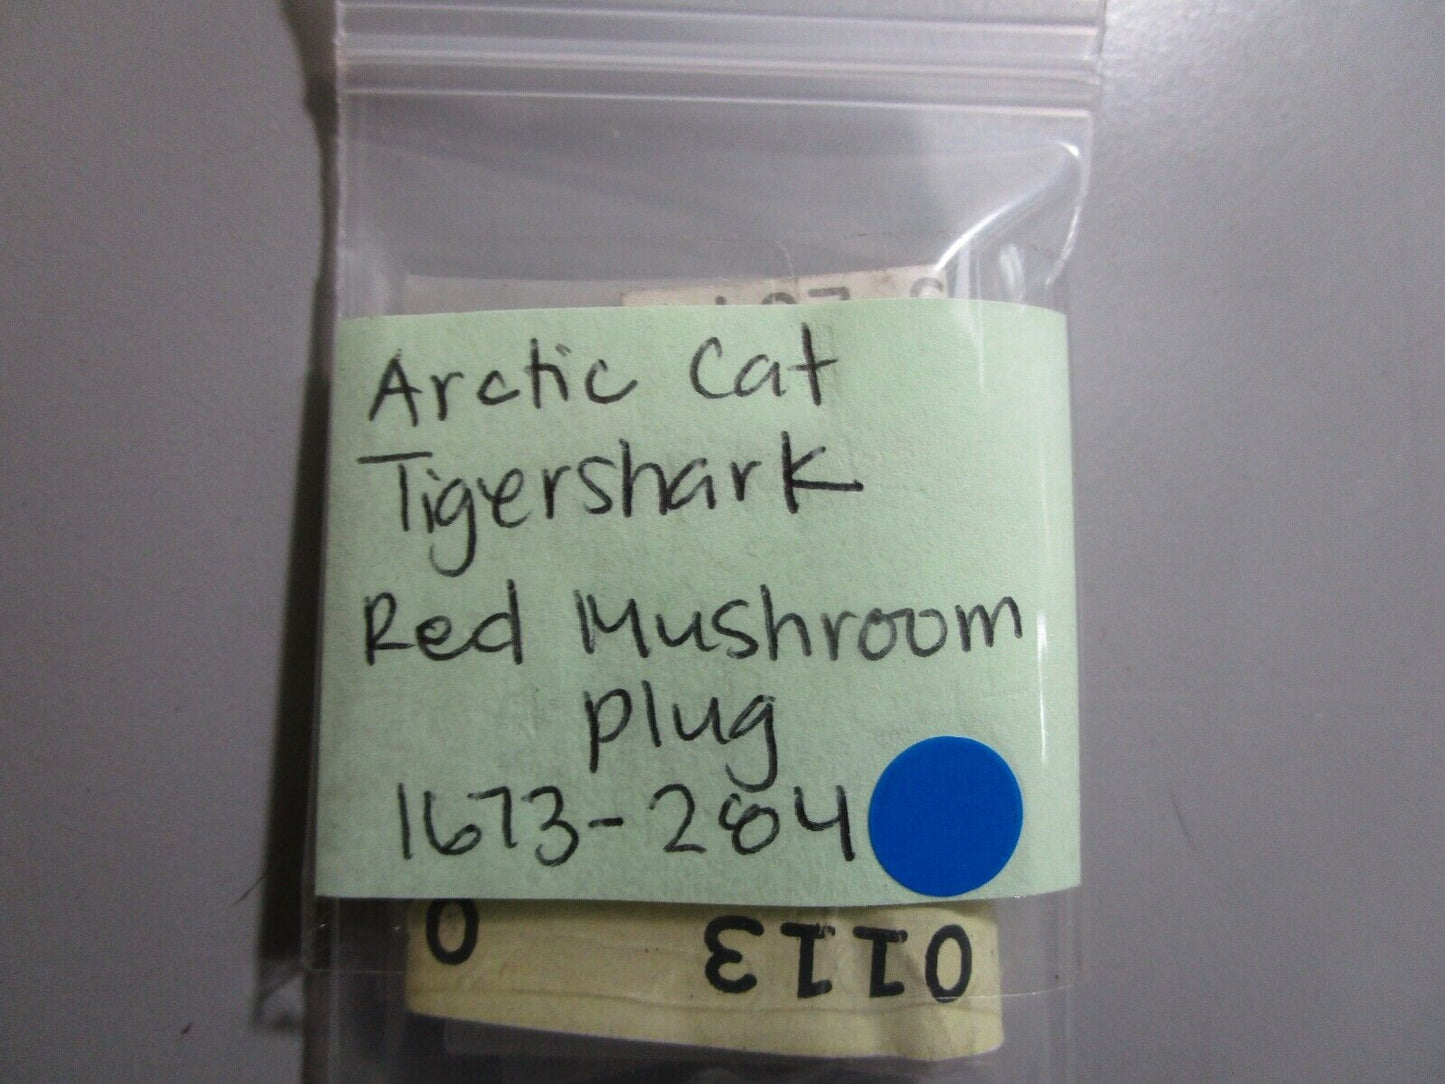 Arctic Cat
Tigershark
Red Mushroom
plug
1673-284
0 0113